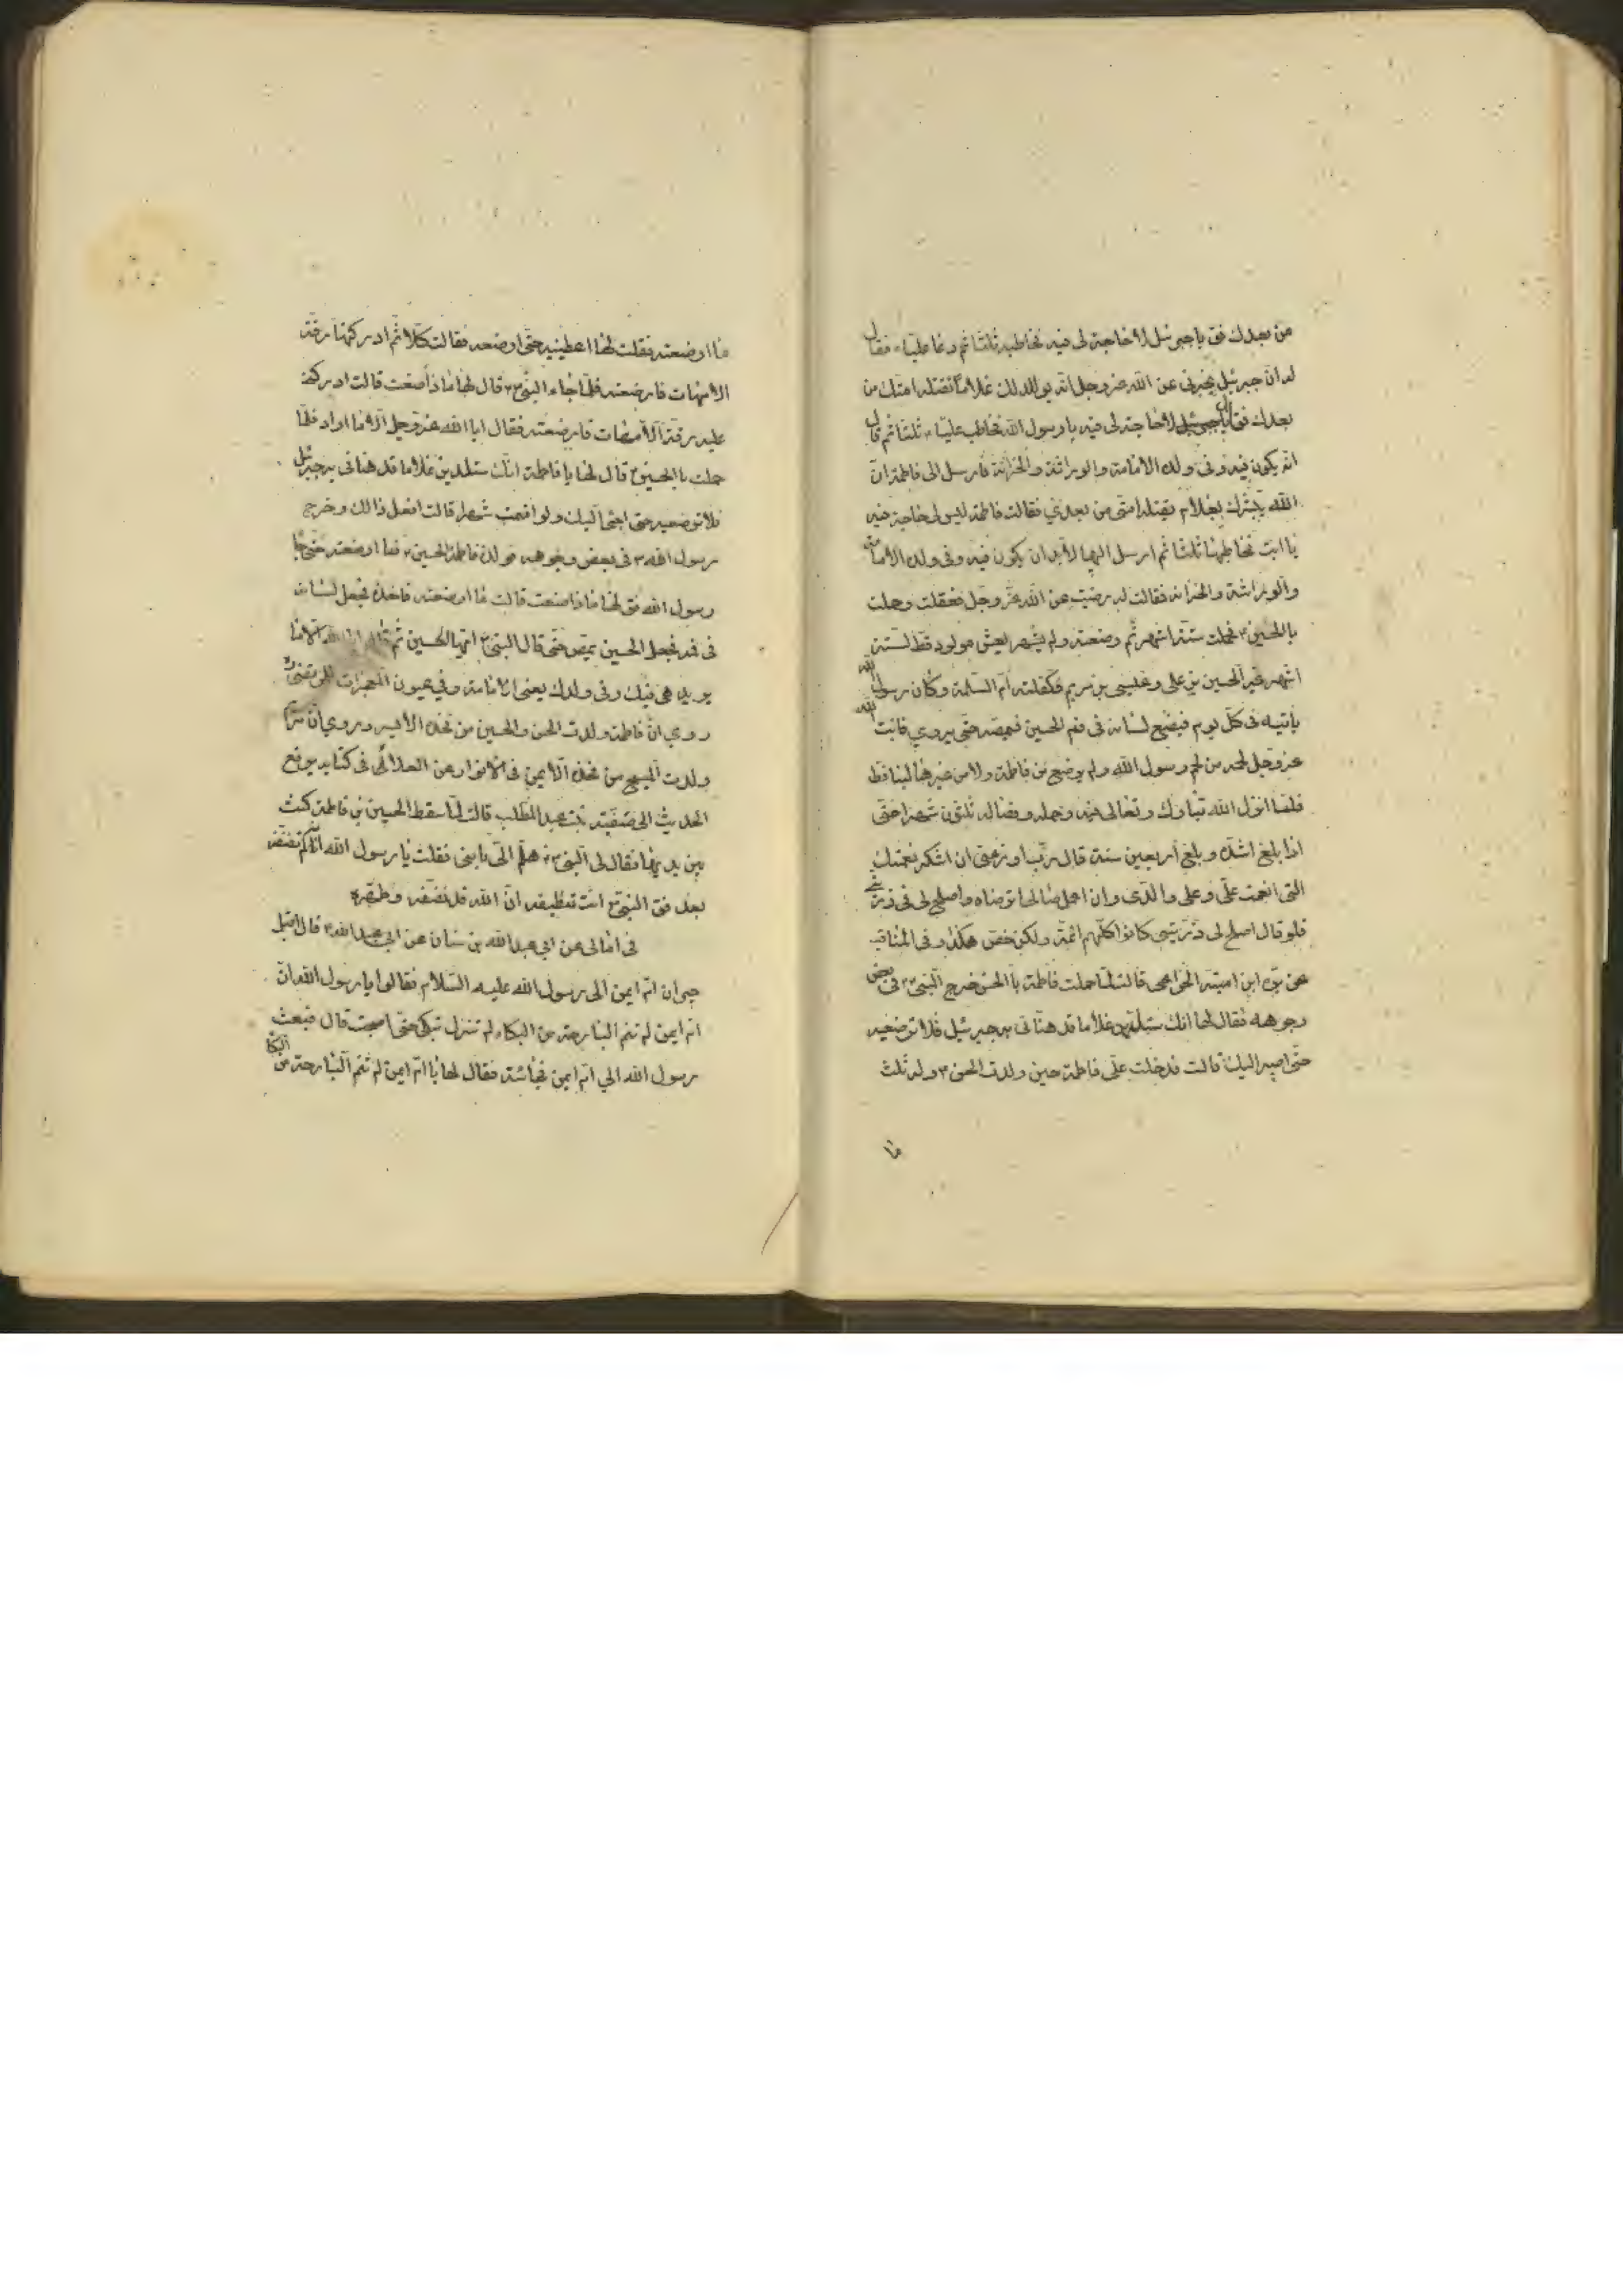 من بعدك فق يا جبرئيل لا حاجة لى فيه فخاطبه ثلثا ثم دعا عليا ع فقال
له ان جبرئيل يخبرنى عن الله عز وجل انه يولد لك غلاما تقتله امتك من
بعدك فقال يا جبرئيل لا حاجة لى فيه يا رسول الله فخاطب عليا ع ثلثا ثم قال
انه يكون فيه وفى ولده الامامة والوراثة والخزانة فارسل الى فاطمة ان
الله يبشرك بغلام تقتله امتى من بعدي فقالت فاطمة ليس لى حاجة فيه
يا ابت فخاطبها ثلثا ثم ارسل اليها لا بد ان يكون فيه وفى ولده الامامة
والوراثة والخزانة فقالت له رضيت عن الله عز وجل فعقلت وحملت
بالحسين ع فحملت ستة اشهر ثم وضعته ولم يعش مولود قط لستة
اشهر غير الحسين بن على وعيسى بن مريم فكفلته ام السلمة وكان رسول الله
ياتيه فى كل يوم فيضع لسانه فى فم الحسين فيمصه حتى يروي فانبت الله
عز وجل لحمه من لحم رسول الله ولم يرضع من فاطمة ولا من غيرها لبنا قط
فلما انزل الله تبارك وتعالى فيه وحمله وفصاله ثلثون شهرا حتى
اذا بلغ اشده وبلغ اربعين سنة قال رب اوزعنى ان اشكر نعمتك
التى انعمت على وعلى والدى وان اعمل صالحا ترضاه واصلح لى فى ذريتى
فلو قال اصلح لى ذريتى كانوا كلهم ائمة ولكن خص هكذا وفى المناقب
عن برة ابن امية الخزاعى قالت لما حملت فاطمة بالحسن خرج النبى ص فى بعض
وجوهه فقال لها انك ستلدين غلاما قد هنأنى به جبرئيل فلا ترضعيه
حتى اصير اليك قالت فدخلت على فاطمة حين ولدت الحسن ع وله ثلث
ما
ما ارضعته فقلت لها اعطينيه حتى ارضعه فقالت كلا ثم ادركتها رقة
الامهات فارضعته فلما جاء النبى ص قال لها ماذا صنعت قالت ادركنى
عليه رقة الامهات فارضعته فقال ابا الله عز وجل الا ما اراد فلما
حملت بالحسين ع قال لها يا فاطمة انك ستلدين غلاما قد هنانى به جبرئيل
فلا ترضعيه حتى اجئ اليك ولو اقمت شهرا قالت افعل ذالك وخرج
رسول الله ص فى بعض وجوهه فولدت فاطمة الحسين ع فما ارضعته حتى جا
رسول الله فق لها ماذا صنعت قالت ما ارضعته فاخذه فجعل لسانه
فى فمه فجعل الحسين يمص حتى قال النبى ص ايها الحسين ثم قال الا ما
يريد هى فيك وفى ولدك يعنى الامامة وفي عيون المعجزات للمرتضى
روي ان فاطمة ولدت الحسن والحسين من فخذه الايسر وروي ان مريم
ولدت المسيح من فخذه الايمن فى الانوار عن العلائى فى كتابه يرفع
الحديث الى صفية بنت عبد المطلب قالت لما سقط الحسين من فاطمة كنت
بين يديها فقال لى النبى ص هلم الى بابنى فقلت يا رسول الله انا لم ننظفه
بعد فق النبى ص انت تنظيفه ان الله قد نظفه وطهره
فى امالى عن ابي عبد الله بن سنان عن ابي عبد الله ع قال اقبل
جيران ام ايمن الى رسول الله عليه السلام فقالوا يا رسول الله ان
ام ايمن لم تنم البارحة من البكاء لم تنزل تبكى حتى اصبحت قال فبعث
رسول الله الي ام ايمن فجائته فقال لها يا ام ايمن لم تنم البارحة من البكا